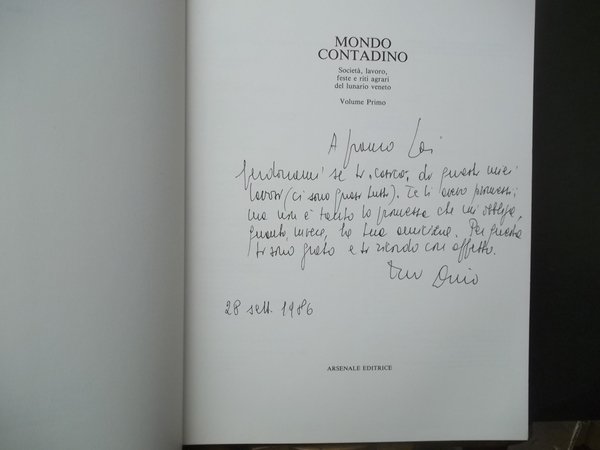 MONDO
CONTADINO
Società, lavoro,
feste e riti agrari
del lunario veneto
Volume Primo
A Franco Loi
perdonami se ti "carico" di questi miei
lavori (ci sono quasi tutti). Te li avevo promessi;
ma non è tanto la promessa che mi obbliga,
quanto, invece, la tua amicizia. Per questa
ti sono grato e ti ricordo con affetto.
tuo
28 sett. 1986
ARSENALE EDITRICE